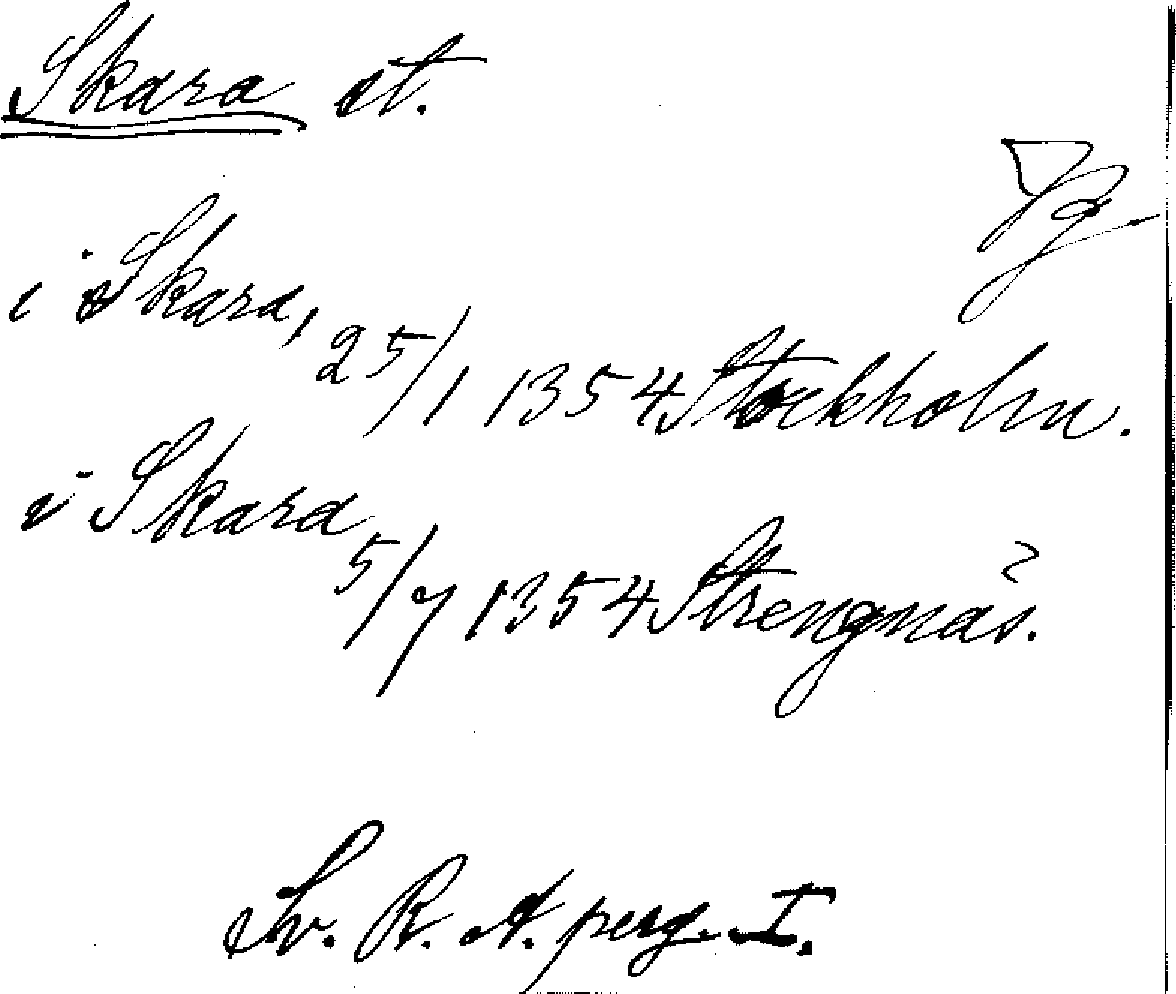 Skara st.
Vg
i Skara, 25/1 1354 Stockholm.
i Skara 5/7 1354 Strengnäs.
Sv. R. A. perg. I.